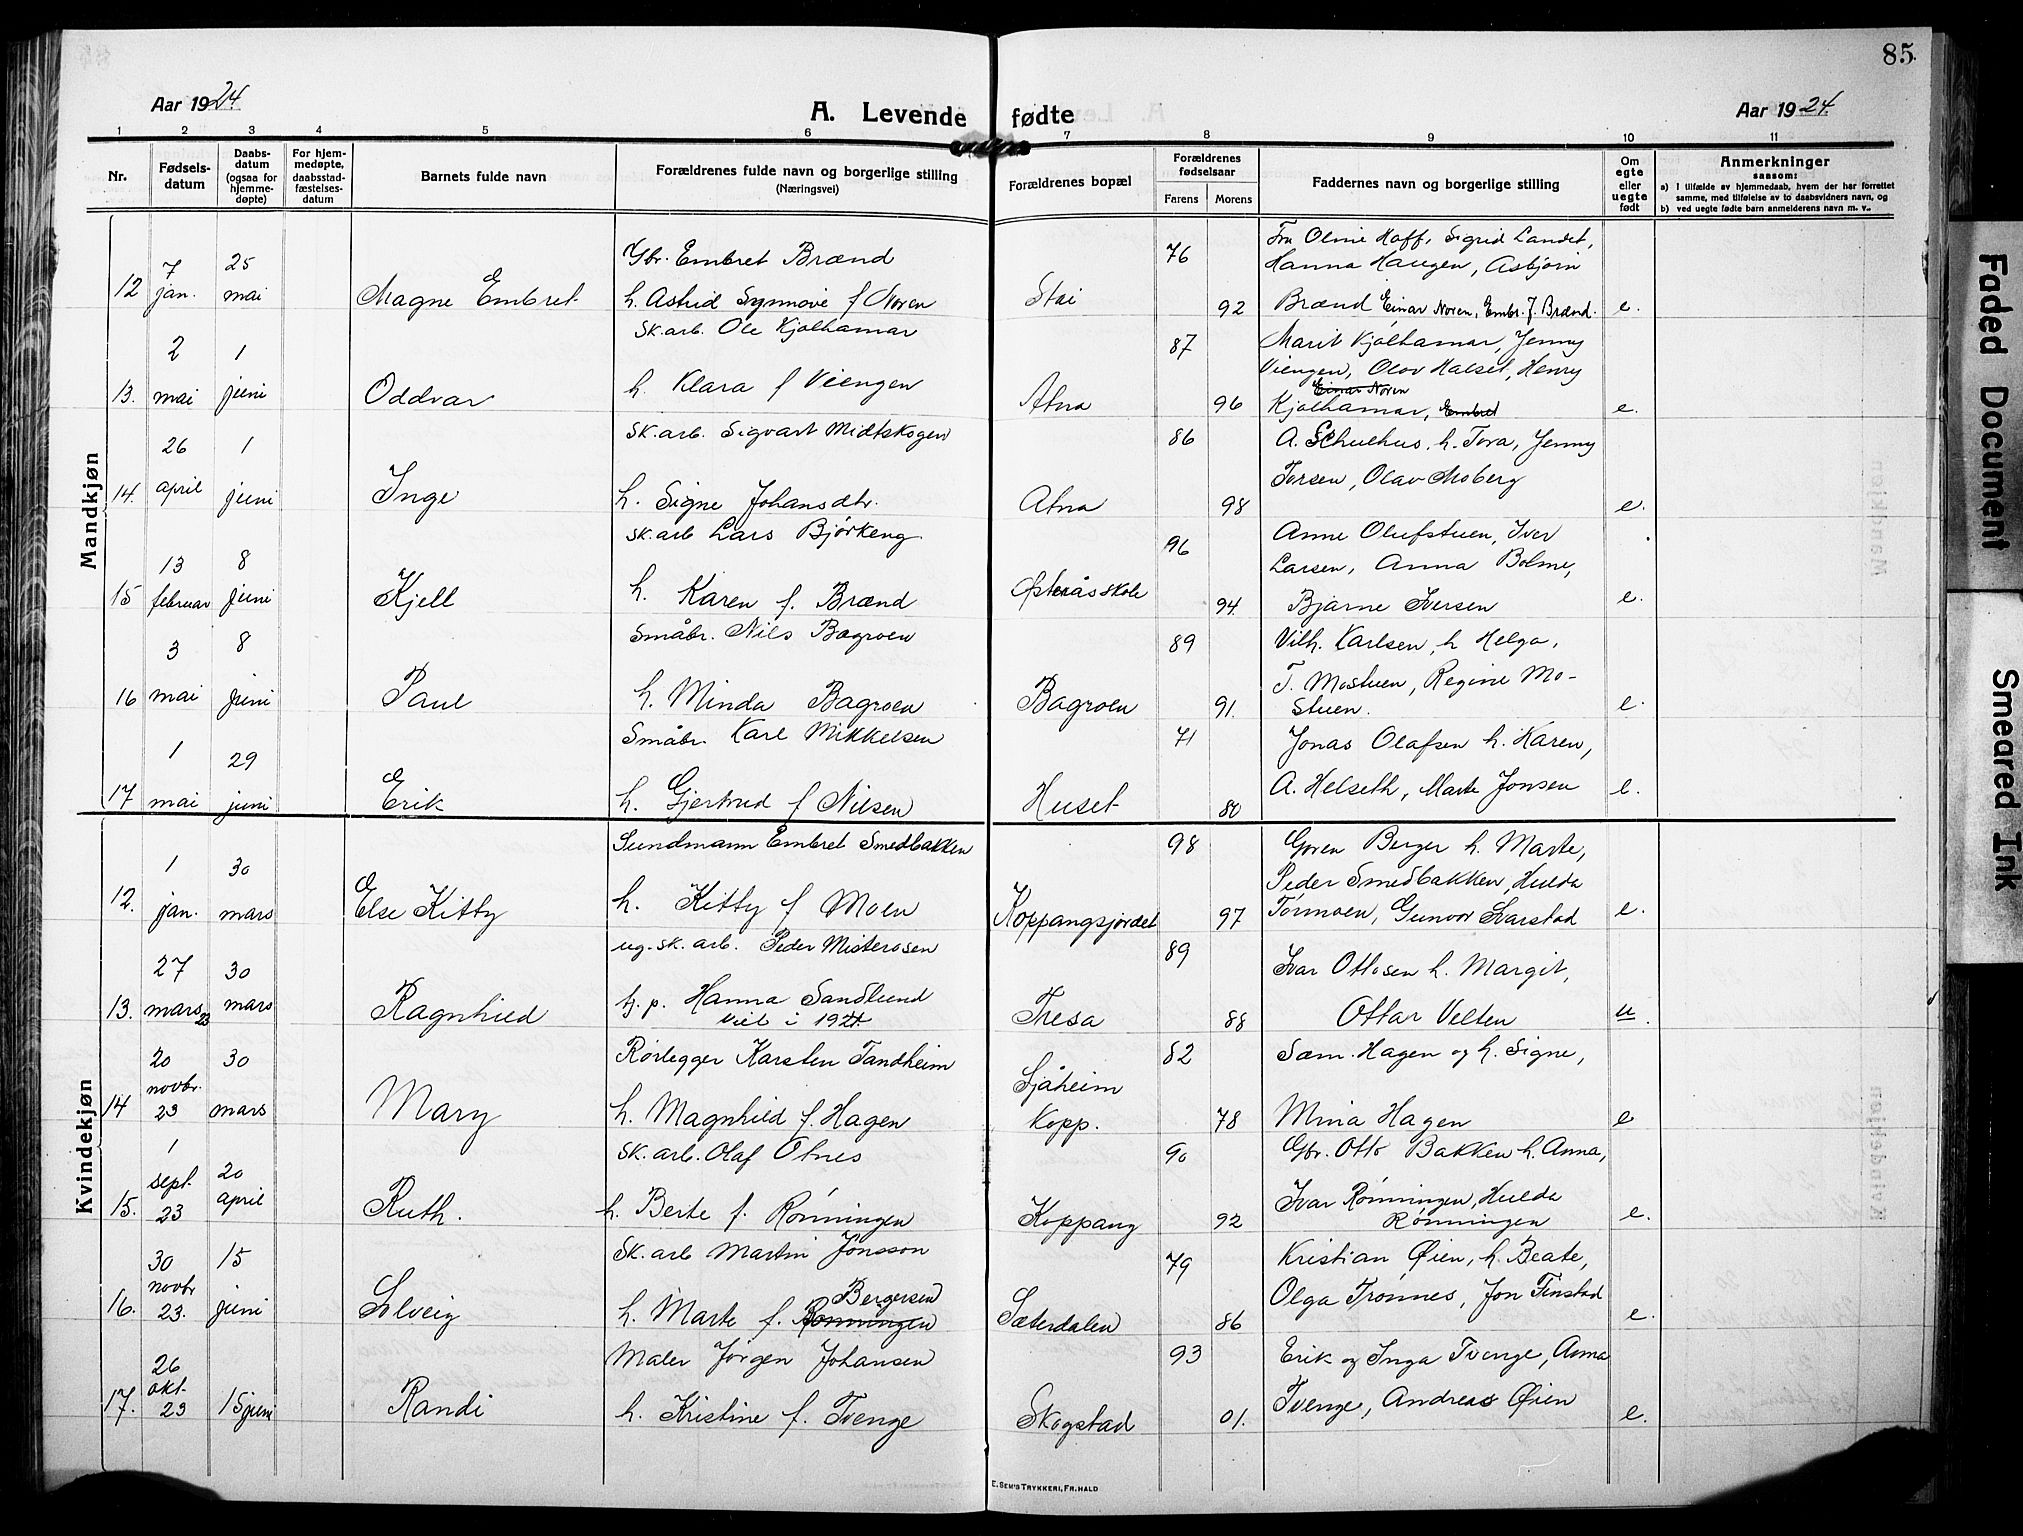 85
Aar 1924
A. Levende fødte
Aar 1924.
1 2 3 4 5 6 7 8 9 10 11
Nr.
Fødselsdatum
Daabsdatum (ogsaa for hjemmedøpte)
For hjemmedøpte, daabsstadfæstelsesdatum
Barnets fulde navn
Forældrenes fulde navn og borgerlige stilling
(Næringsvei)
Forældrenes bopæl
Forældrenes fødselsaar
Farens Morens
Faddernes navn og borgerlige stilling
Om egte eller uegte født
Anmerkninger
sansom:
a) I tilfælde av hjemmedaab, hvem der har forrettet samme, med tilføielse av to daabsvidners navn, og
b) ved uegte fødte barn anmelderens navn m. v..
Mandkjøn
12 7 jan. 25 mai Magne Embret
Gbr. Embret Brænd
h. Astrid Synnøve f Noren
Stai 76 92
Fru Oline Hoff, Sigrid Landet,
Hanna Haugen, Asbjørn
Brænd Einar Noren, Embr. J. Brænd. e.
13. 2 mai 1 juni Oddvar
Sk.arb. Ole Kjølhamar
h. Klara f Viengen
Atna 87 96
Marit Kjølhamar, Jenny
Viengen, Olov Halset, Henry
Einar Noren
Kjølhamar, Embret e.
14. 26 april 1 juni Inge
Sk.arb. Sigvart Midtskogen
h. Signe Johansdtr.
Atna 86 98
A. Schulhus, h. Tora, Jenny
Torsen, Olav Moberg e.
15 13 februar 8 juni Kjell
Sk.arb Lars Bjørkeng
h. Karen f. Brænd
Østerås skole 96 94.
Anne Olufstuen, Iver
Larsen, Anna Bolme,
Bjarne Iversen e.
16 3 mai 8 juni Paul
Småbr. Nils Bagroen
h. Minda Bagroen
Bagroen 89 91.
Vilh. Karlsen, h Helga,
T. Mostuen, Regine Mo-
stuen. e.
17 1 mai 29 juni Erik
Småbr. Karl Mikkelsen
h. Gjertrud f Nilsen
Huset 71 80
Jonas Olafsen h. Karen,
A. Helseth, Marte Jonsen e.
Kvindekjøn
12. 1 jan. 30 mars Else Kitty
Sundmann Embret Smedbakken
h. Kitty f Moen
Koppangsjordet 98 97
Goren Berger h. Marte,
Peder Smedbakken, Hulda
Tørmoen, Gunvor Svarstad e.
13. 27 mars 23 30 mars Ragnhild
ug. sk. arb. Peder Misterosen
tj. p. Hanna Sandlund
viet i 1924.
Tresa 89 88
Ivar Ottosen h. Margit,
Ottar Velten u.
14 20 novbr. 23 30 mars Mary
Rørlegger Karsten Tandheim
h. Magnhild f. Hagen
Sjåheim
Kopp. 82 78
Sam. Hagen og h. Signe,
Mina Hagen e
15. 1 sept. 23 20 april Ruth.
Sk. arb. Olaf Otnes
h. Berte f. Rønningen
Koppang 90 92
Gbr. Otto Bakken h. Anna,
Ivar Rønningen, Hulda
Rønningen e.
16. 30 novbr 23. 15 juni Solveig
Sk. arb Martin Jonsson
Bergersen
h. Marte f. Rønningen
Sæterdalen 79 86
Kristian Øien, h. Beate,
Olga Trønnes, Jon Finstad e.
17. 26 okt. 23 15 juni Randi
Maler Jørgen Johansen
h. Kristine f. Tvenge
Skogstad 93 01.
Erik og Inga Tvenge, Anna
Tvenge, Andreas Øien e.
E. SEM'S TRYKKERI, FR.HALD
Faded Document
Smeared Ink